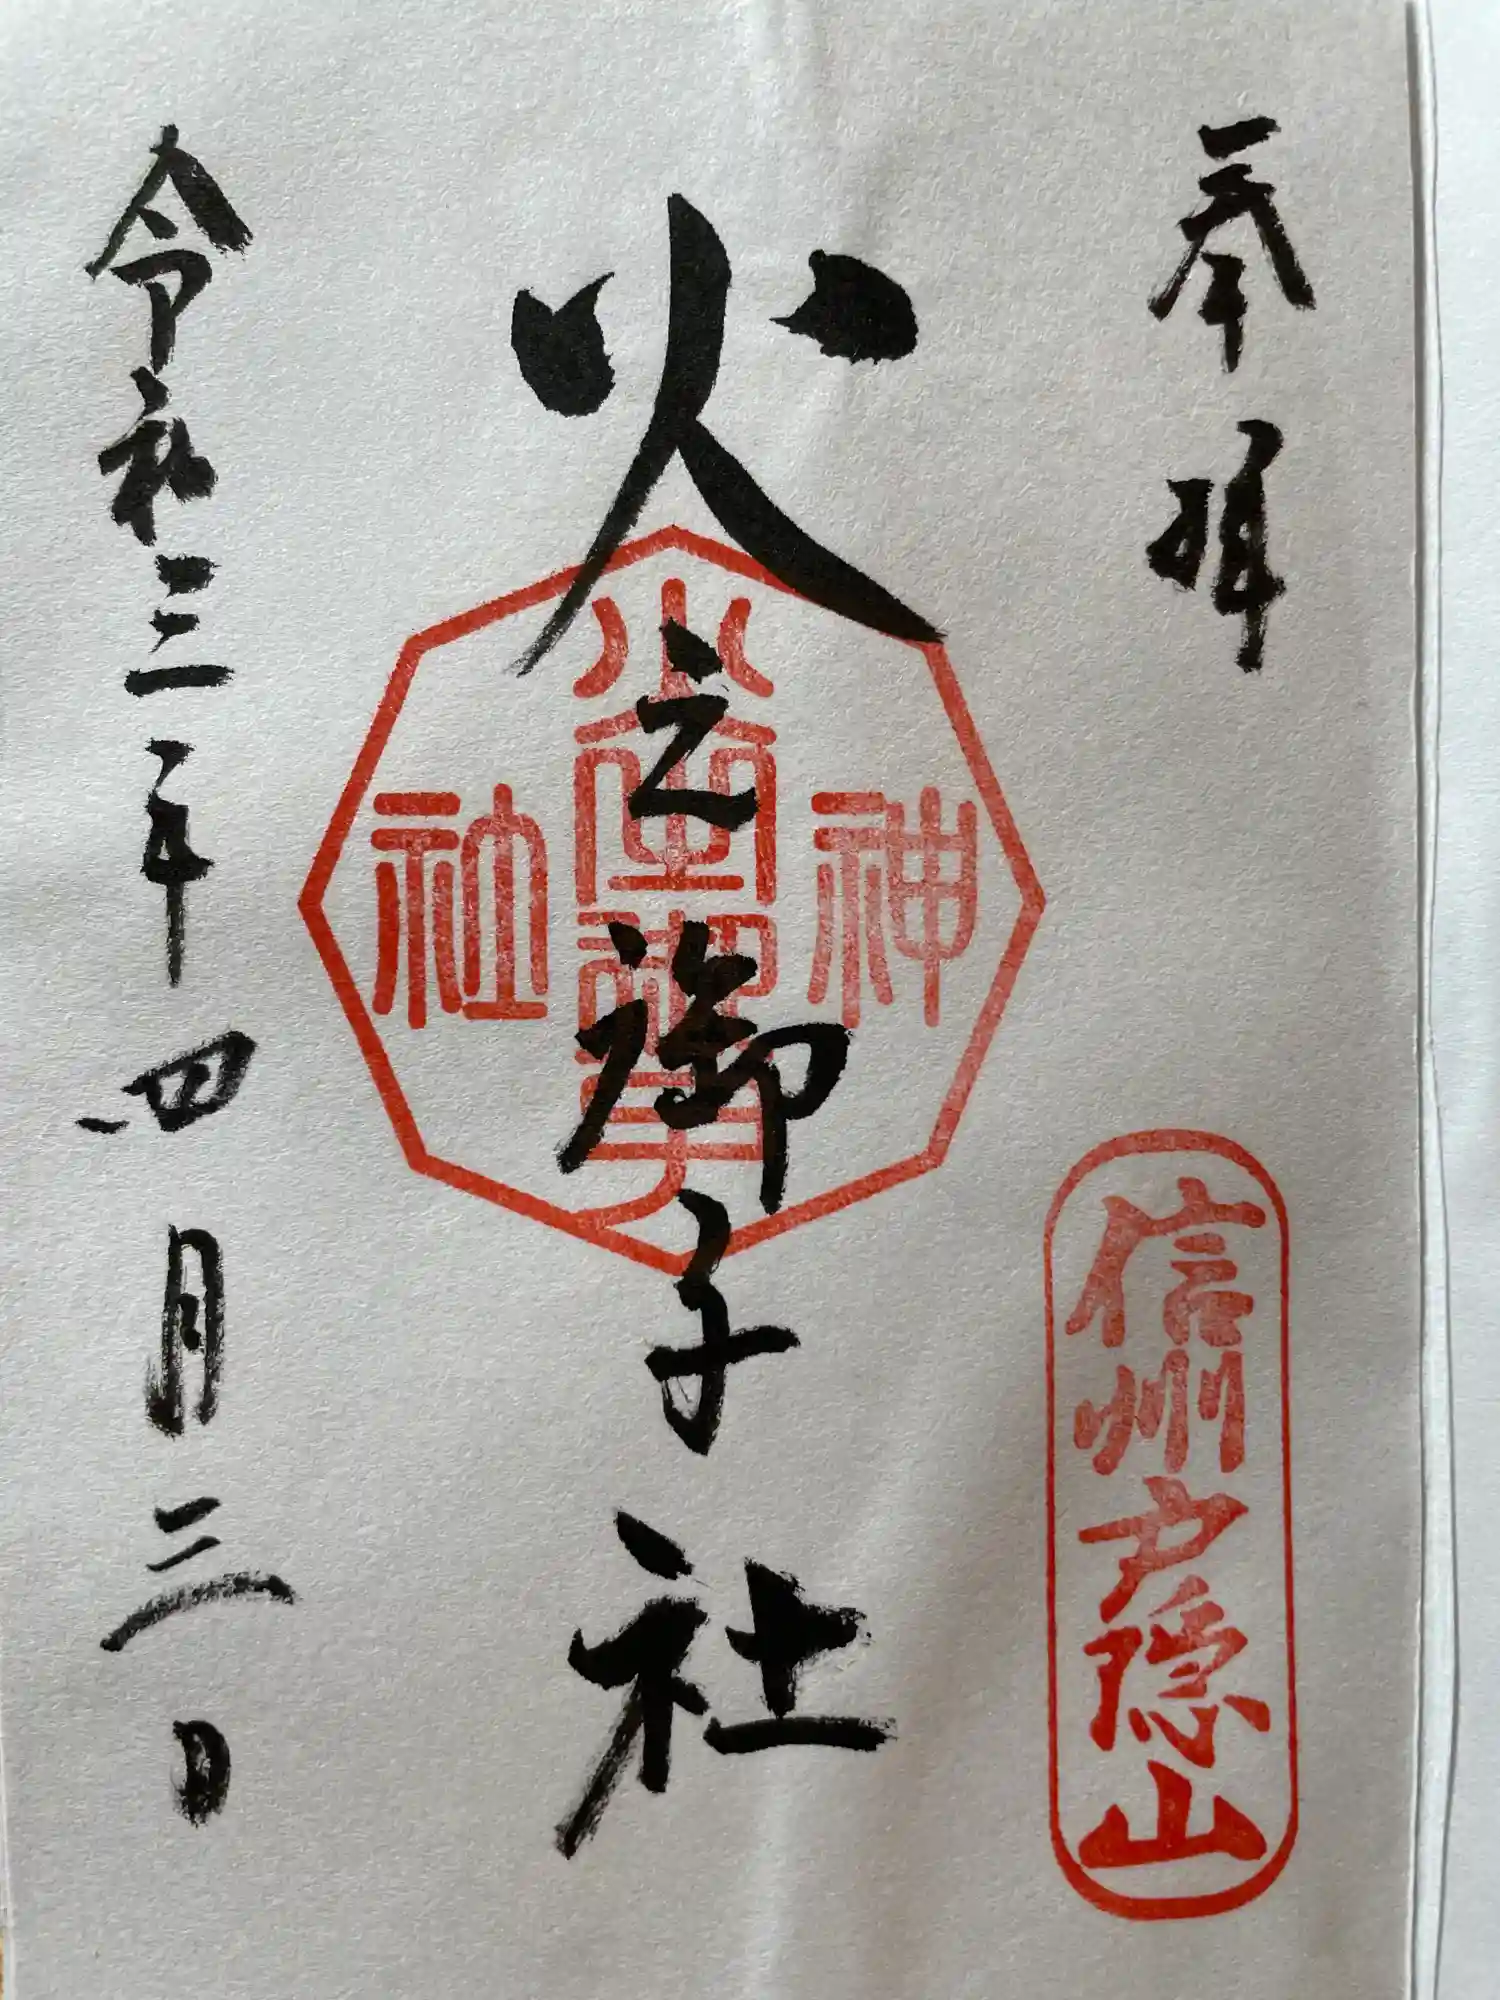 奉拝
信州戸隠山
火之御子社
神
社
令和三年四月三日